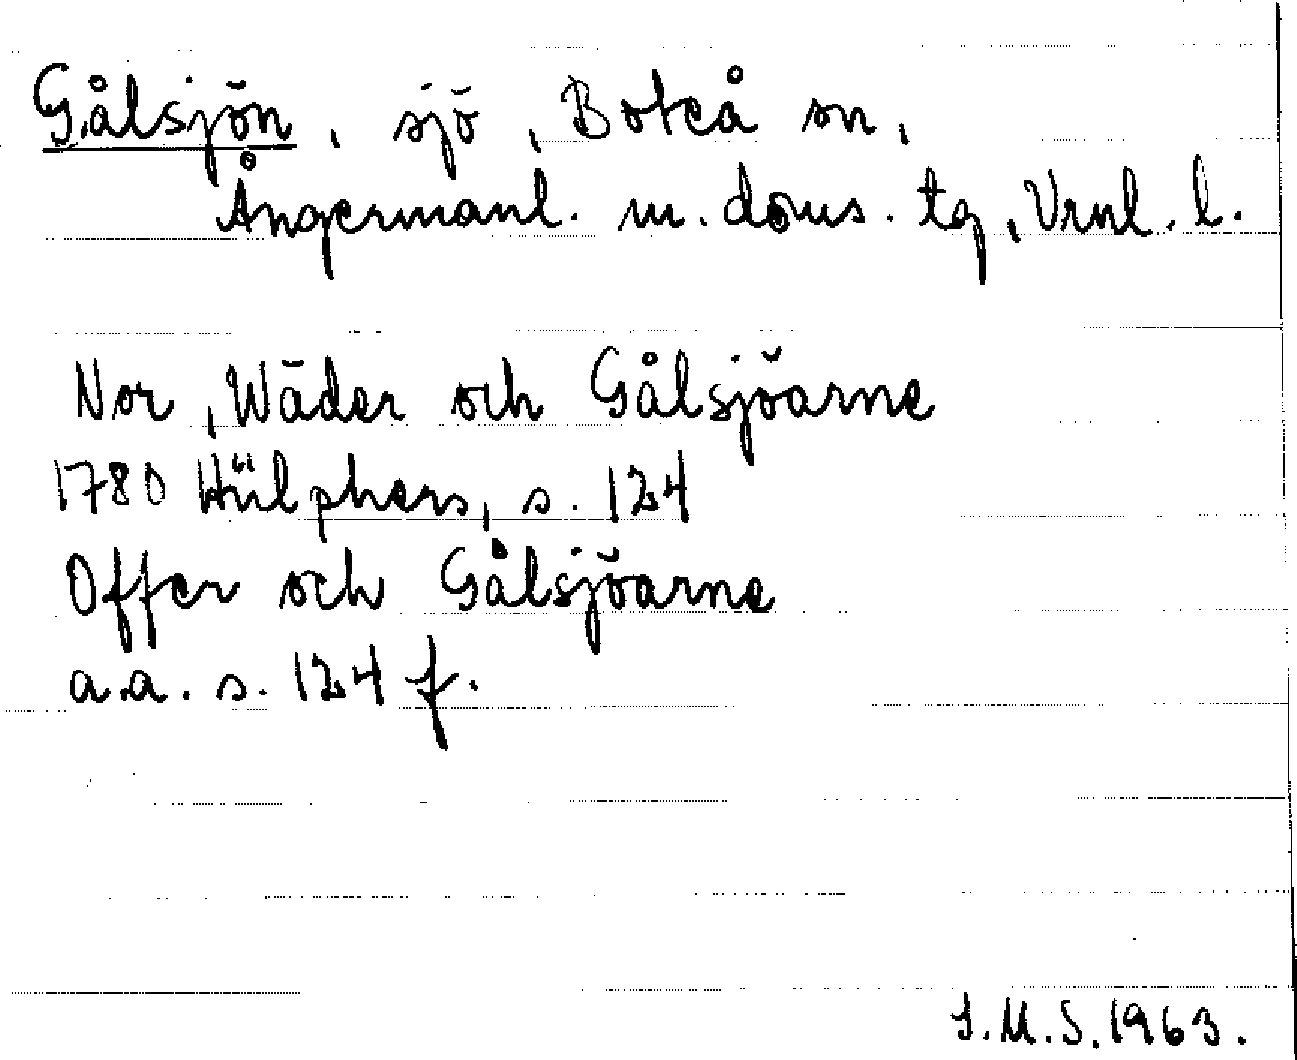 Gålsjön, sjö, Boteå sn,
Ångermanl. m. doms. tg, Vrnl. l.
Nor, Wäder och Gålsjöarne
1780 Hülphers, s. 124
Offer och Gålsjöarne
a.a. s. 124 f.
I.M.S. 1963.